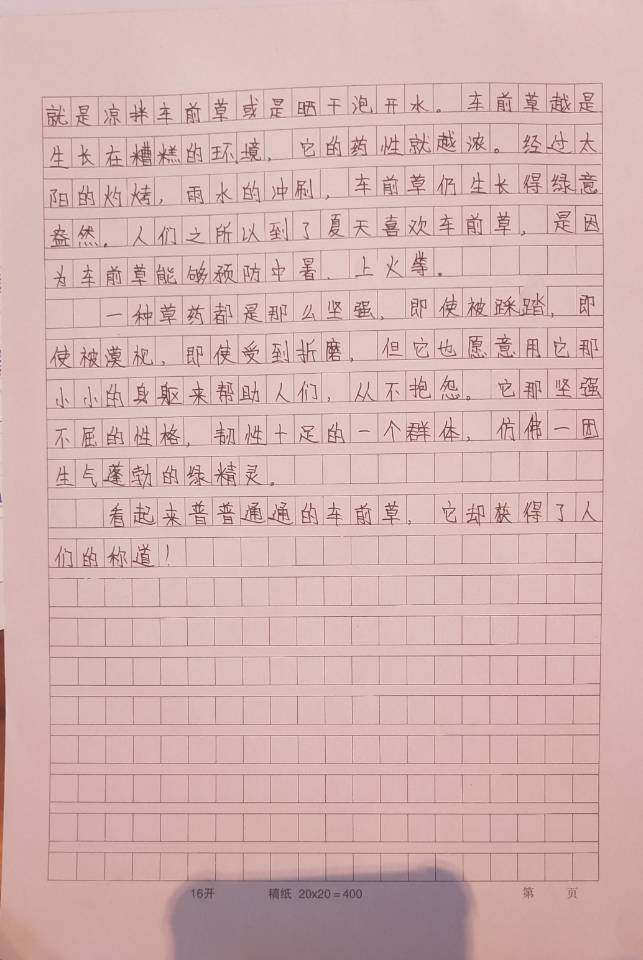 就是凉拌车前草或是晒干泡开水。车前草越是
生长在糟糕的环境，它的药性就越浓。经过太
阳的灼烤，雨水的冲刷，车前草仍生长得绿意
盎然。人们之所以到了夏天喜欢车前草，是因
为车前草能够预防中暑、上火等。
一种草药都是那么坚强，即使被踩踏，即
使被漠视，即使受到折磨，但它也愿意用它那
小小的身躯来帮助人们，从不抱怨。它那坚强
不屈的性格，韧性十足的一个群体，仿佛一团
生气蓬勃的绿精灵。
看起来普普通通的车前草，它却获得了人
们的称道！
16开 稿纸 20x20=400 第 页